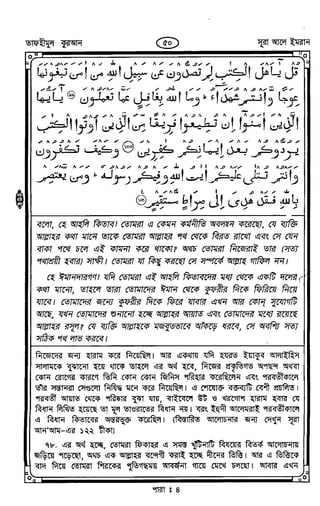 তাফহীমুল কুরআন
৫০
সূরা আলে ইমরান
قُلْ يٰٓاَهْلَ الْكِتٰبِ لِمَ تَصُدُّوْنَ عَنْ سَبِيْلِ اللّٰهِ مَنْ اٰمَنَ تَبْغُوْنَهَا
عِوَجًا وَّاَنْتُمْ شُهَدَآءُ ؕ وَمَا اللّٰهُ بِغَافِلٍ عَمَّا تَعْمَلُوْنَ ﴿٩٩﴾ يٰٓاَيُّهَا
الَّذِيْنَ اٰمَنُوْٓا اِنْ تُطِيْعُوْا فَرِيْقًا مِّنَ الَّذِيْنَ اُوْتُوا الْكِتٰبَ
يَرُدُّوْكُمْ بَعْدَ اِيْمَانِكُمْ كٰفِرِيْنَ ﴿١٠٠﴾ وَكَيْفَ تَكْفُرُوْنَ
وَاَنْتُمْ تُتْلٰى عَلَيْكُمْ اٰيٰتُ اللّٰهِ وَفِيْكُمْ رَسُوْلُهٗ ؕ وَمَنْ يَّعْتَصِمْ
بِاللّٰهِ فَقَدْ هُدِيَ اِلٰى صِرَاطٍ مُّسْتَقِيْمٍ ﴿١٠١﴾
বলো, হে আহলি কিতাব! তোমরা এ কেমন কর্মনীতি অবলম্বন করেছো, যে ব্যক্তি
আল্লাহর কথা মানে তাকে তোমরা আল্লাহর পথ থেকে বিরত রাখো এবং সে যেন
বাঁকা পথে চলে এই কামনা করে থাকো? অথচ তোমরা নিজেরাই তার (সত্য
পথাশ্রয়ী হবার) সাক্ষী। তোমরা যা কিছু করছো সে সম্পর্কে আল্লাহ গাফিল নন।
হে ঈমানদারগণ! যদি তোমরা এই আহলি কিতাবদের মধ্য থেকে একটি দলের
কথা মানো, তাহলে তারা তোমাদের ঈমান থেকে কুফরীর দিকে ফিরিয়ে নিয়ে
যাবে। তোমাদের জন্যে কুফরীর দিকে ফিরে যাবার এখন আর কোন্ সুযোগটি
আছে, যখন তোমাদের শুনানো হচ্ছে আল্লাহর আয়াত এবং তোমাদের মধ্যে রয়েছে
আল্লাহর রসূল? যে ব্যক্তি আল্লাহকে মজবুতভাবে আঁকড়ে ধরবে, সে অবশ্যি সত্য
সঠিক পথ লাভ করবে।
নিজেদের জন্য হারাম করে নিয়েছিল। আর একথায় যদি হযরত ইয়াকুব আলাইহিস
সালামকে বুঝানো হয়ে থাকে তাহলে এর অর্থ হবে, নিজের প্রকৃতিগত অপছন্দ অথবা
কোন রোগের কারণে তিনি কোন কোন জিনিস পরিহার করেছিলেন এবং পরবর্তীকালে
তাঁর সন্তানরা সেগুলো নিষিদ্ধ মনে করে নিয়েছিল। এ শেষোক্ত বক্তব্যটি বেশী প্রচলিত।
পরবর্তী আয়াত থেকে পরিষ্কার বুঝা যায়, বাইবেলে উট ও খরগোশ হারাম হবার যে
বিধান লিখিত হয়েছে তা মূল তাওরাতের বিধান নয়। বরং ইহুদী আলেমরাই পরবর্তীকালে
এ বিধান কিতাবের অন্তরভুক্ত করেছিল। (বিস্তারিত আলোচনার জন্য দেখুন সূরা
আন'আম-এর ১২২ টীকা)
৭৮. এর অর্থ হচ্ছে, তোমরা ফিকাহর এ সমস্ত খুঁটিনাটি বিষয়ের বিতর্ক আলোচনায়
জড়িয়ে পড়েছো, অথচ এক আল্লাহর বন্দেগী করাই হচ্ছে দীনের ভিত্তি। আর এ ভিত্তিকে
বাদ দিয়ে তোমরা শিরকের পুতিগন্ধময় আবর্জনা গায়ে মেখে চলছো। আবার এখন
পারা : ৪